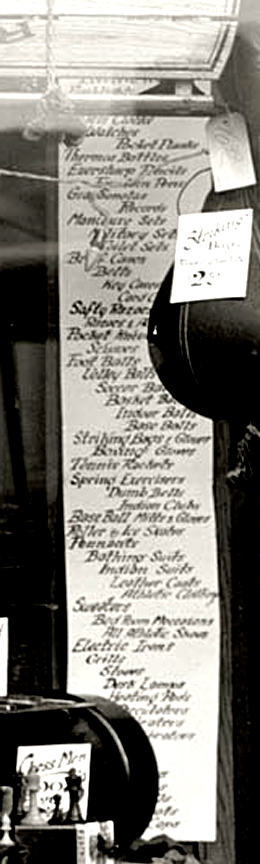 Watches
Pocket Flasks
Thermos Bottles
Eversharp Pencils
Pens
Records
Manicure Sets
Military Sets
Toilet Sets
Belts
Key Cases
Safty Razors
Pocket Knives
Scissors
Foot Balls
Volley Balls
Soccer Ba
Basket Ba
Indoor Balls
Base Balls
Striking Bags & Gloves
Boxing Gloves
Tennis Rackets
Spring Exercisers
Dumb Bells
Indian Clubs
Base Ball Mitts & Gloves
Roller & Ice Skates
Pennants
Bathing Suits
Indian Suits
Leather Coats
Athletic Clothing
Sweaters
Bed Room Moccasins
All Athletic Shoes
Electric Irons
Grills
Stoves
Desk Lamps
Heating Pads
Striking
Bags
2
Chess Men